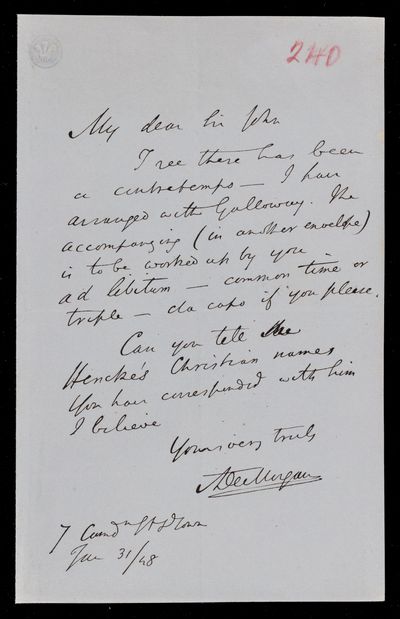 240
My dear Sir John
I see there has been
a contretemps — I have
arranged with Galloway. The
accompanying (in another envelope)
is to be worked up by you
ad libitum — common time or
triple — da capo if you please.
Can you tell me
Hencke's Christian names
You have corresponded with him
I believe
Yours very truly
ADeMorgan
7 Camdn St C Town
Jan 31/48